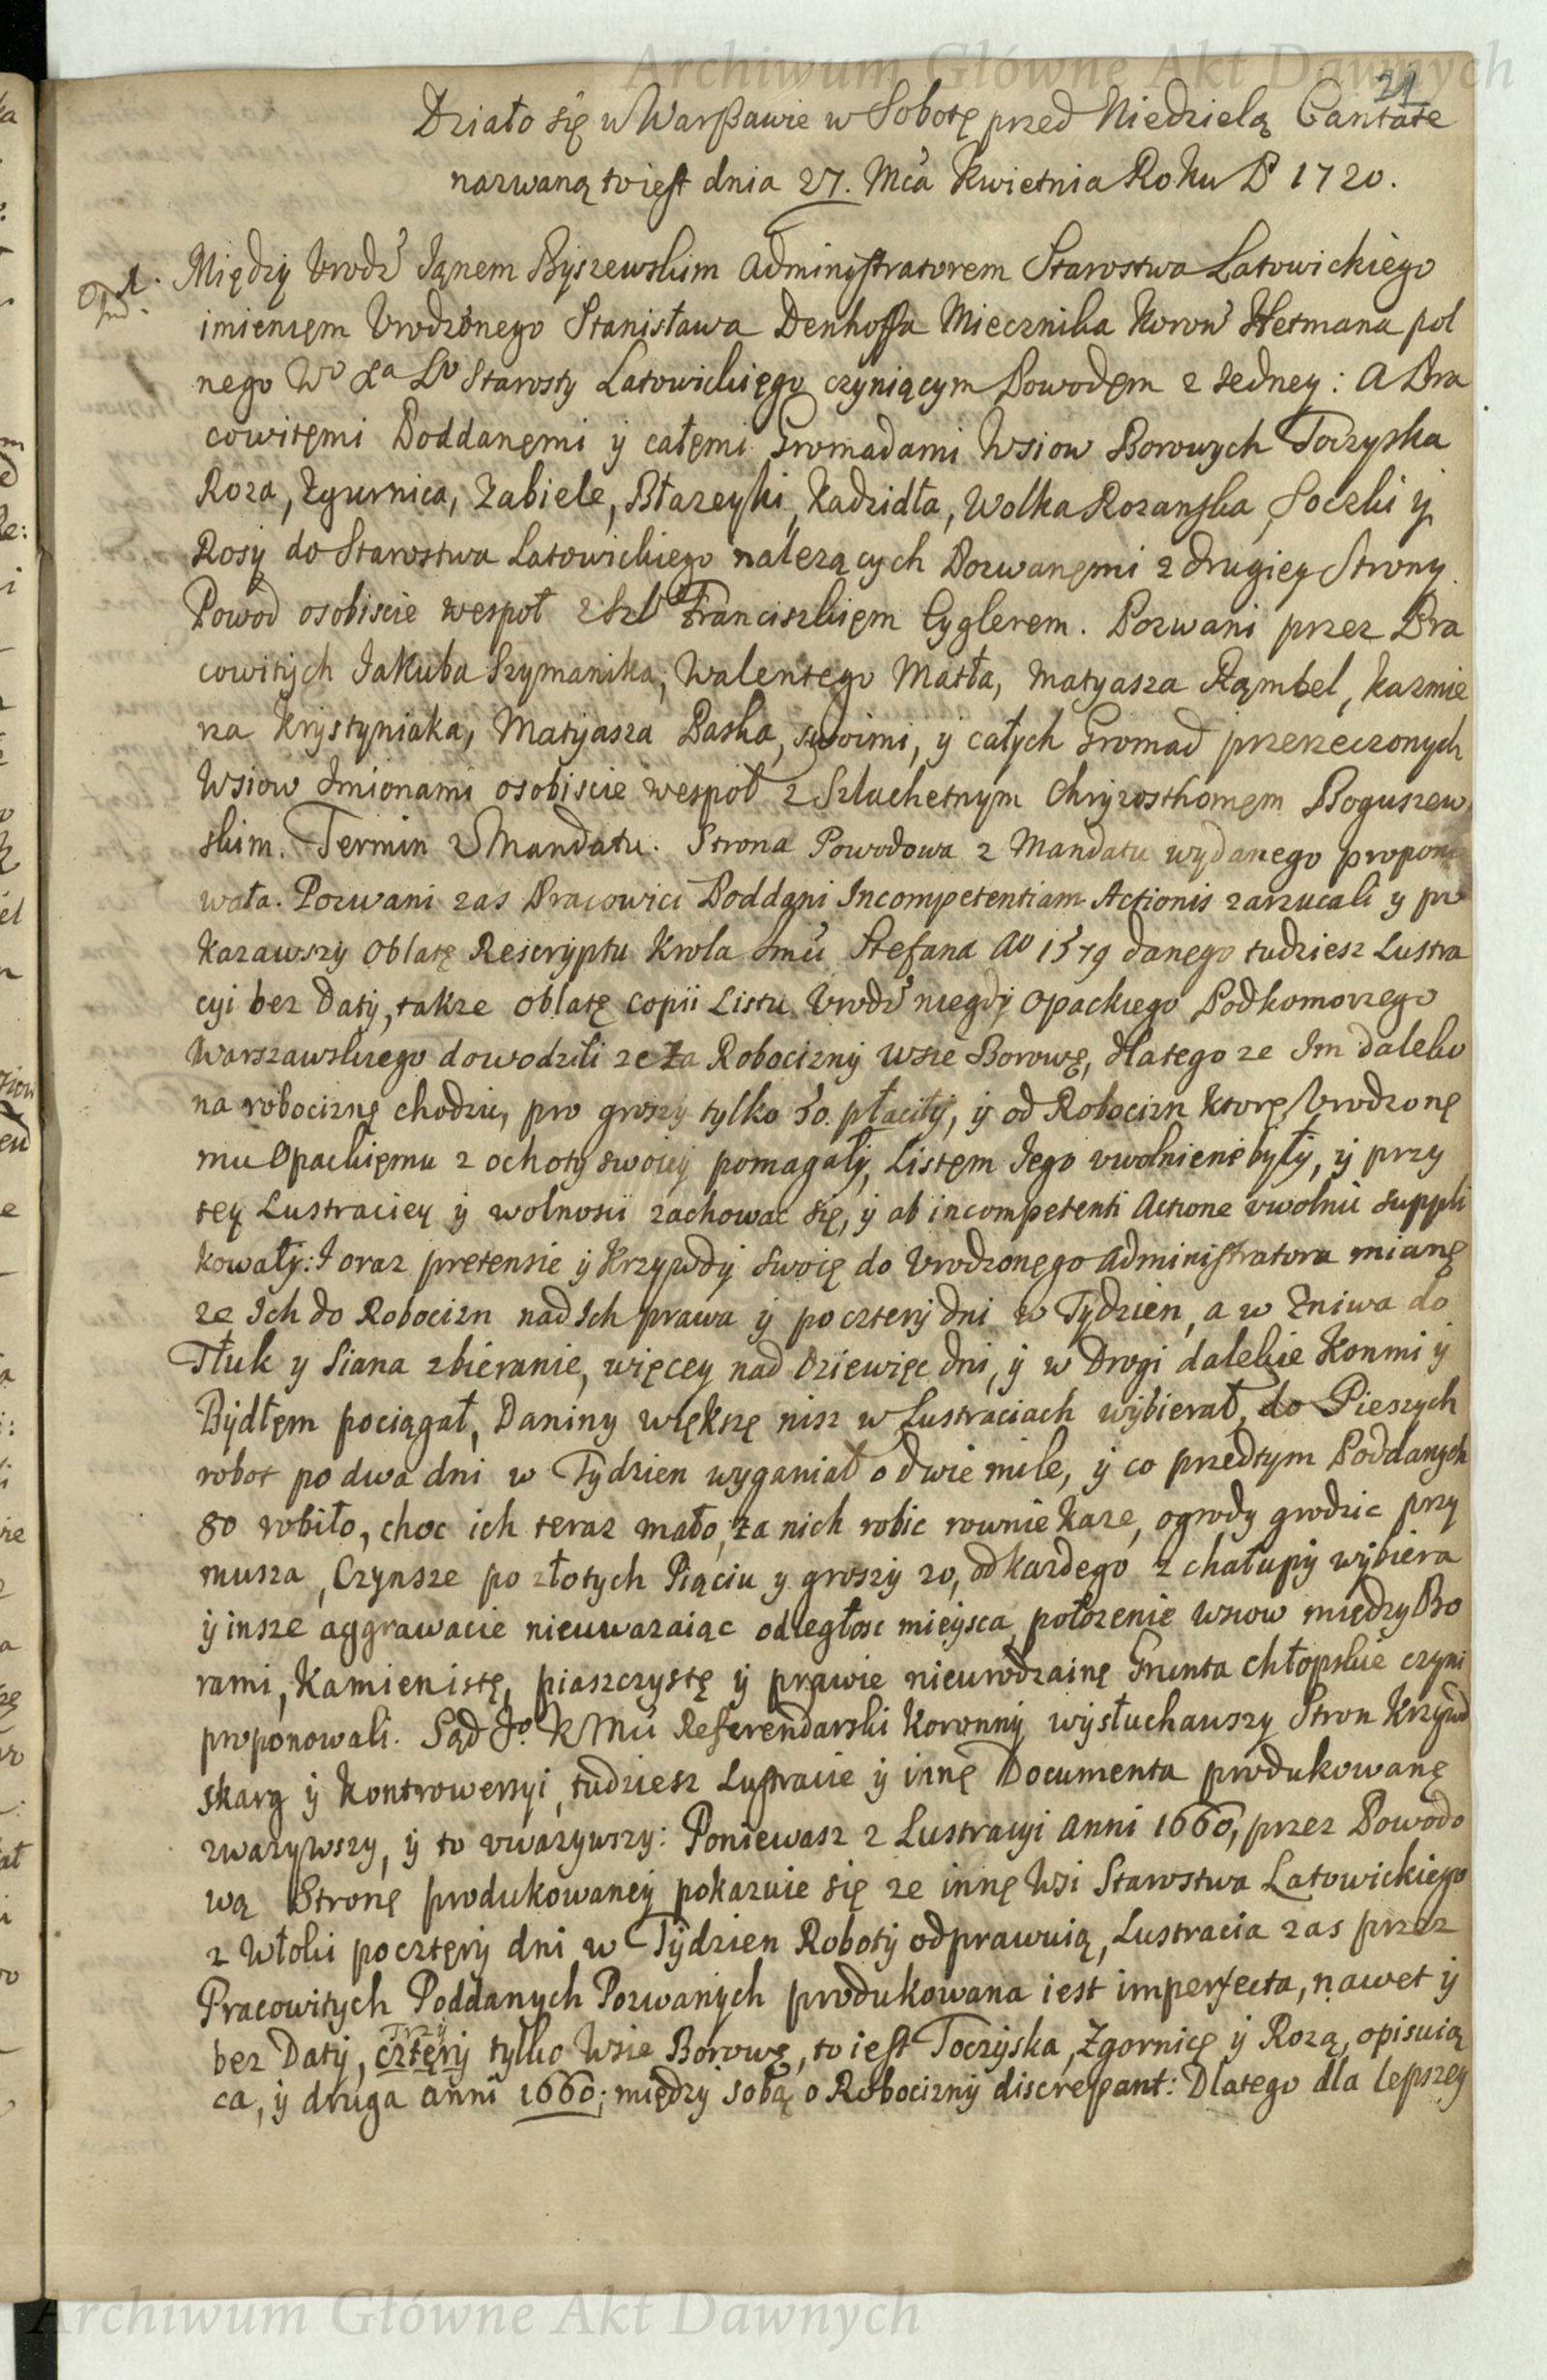 Archiwum Główne Akt Dawnych
21
Działo się w Warszawie w Sobotę przed Niedzielą Cantate
nazwaną to iest dnia 27. Mca Kwietnia Roku P 1720.
1. Między Vrodz Janem Byszewskim Administratorem Starostwa Latowickiego
imieniem Vrodzonego Stanisława Denhoffa Miecznika Koron Hetmana pol
nego Wo Xa Lo Starosty Latowickiego czyniącym Powodęm z Jedney: A Pra
cowitęmi Poddanęmi y całęmi Gromadami Wsiow Borowych Toczyska
Roza, Zgurnica, Zabiele, Błazeyki, Kadzidła, Wolka Rozanska, Soczki y
Rosy do Starostwa Latowickiego nalezących Pozwanęmi z drugiey Strony.
Powod osobiscie wespoł z Szl Franciszkięm Cyglerem. Pozwani przez Pra
cowitych Jakuba Szymanika, Walentego Matła, Matyasza Rąmbel, Kazmie
rza Krystyniaka, Matyasza Paska, swoimi, y całych Gromad przerzeczonych
Wsiow Jmionami osobiscie wespoł z Szlachetnym Chryzosthomęm Boguszew
skim. Termin z Mandatu. Strona Powodowa z Mandatu wydanego propono
wała. Pozwani zas Pracowici Poddani Incompetentiam Actionis zarzucali y po
kazawszy Oblatę Rescryptu Krola Jmci Stefana Ao 1579 danego tudziesz Lustra
cyi bez Daty, takze Oblatę Copii Listu Vrodz niegdy Opackiego Podkomorzego
Warszawskiego dowodzili ze za Robocizny Wsie Borowę, dlatego ze Im daleko
na robociznę chodzic, pro groszy tylko 50. płaciły, y od Robocizn ktorę Vrodzonę
mu Opackięmu z ochoty swoiey pomagały, Listęm Jego vwolnienie były, y przy
tey Lustraciey y wolnosci zachowac się, y ab incompetenti Actione vwolnic suppli
kowały: I oraz pretensie y Krzywdy swoię do Vrodzonęgo Administratora mianę
ze Ich do Robocizn nad Ich prawa y po cztery dni w Tydzien, a w Zniwa do
Tłuk y Siana zbieranie, więcey nad Dziewięc dni, y w Drogi dalekie Konmi y
Bydłęm pociągał, Daniny większę nisz w Lustraciach wybierał, do Pieszych
robot po dwa dni w Tydzien wyganiał o dwie mile, y co przedtym Poddanych
80 robiło, choc ich teraz mało, za nich robic rownie kaze, ogrody grodzic przy
musza, Czynsze po złotych Piąciu y groszy 20, od kazdego z chałupy wybiera
y insze aggrawacie nieuwazaiąc odległosc mieysca, połozenie Wsiow między Bo
rami, Kamienistę, piaszczystę y prawie nieurodzainę Grunta chłopskie czyni
proponowali. Sąd Jo KMci Referendarski Koronny wysłuchawszy Stron Krzywd
skarg y Kontrowersyi, tudziesz Lustracie y innę Documenta produkowanę
zwazywszy, y to vwazywszy: Poniewasz z Lustracyi Anni 1660, przez Powodo
wą Stronę produkowaney pokazuie się ze innę Wsi Starostwa Latowickiego
z Włoki po cztęry dni w Tydzien Roboty odprawuią, Lustracia zas przez
Pracowitych Poddanych Pozwanych produkowana iest imperfecta, nawet y
trzy
bez Daty, cztęry tylko Wsie Borowę, to iest Toczyska, Zgornicę y Rozą, opisuią
ca, y druga anni 1660; między sobą o Robocizny discrepant: Dlatego dla lepszey
Archiwum Główne Akt Dawnych